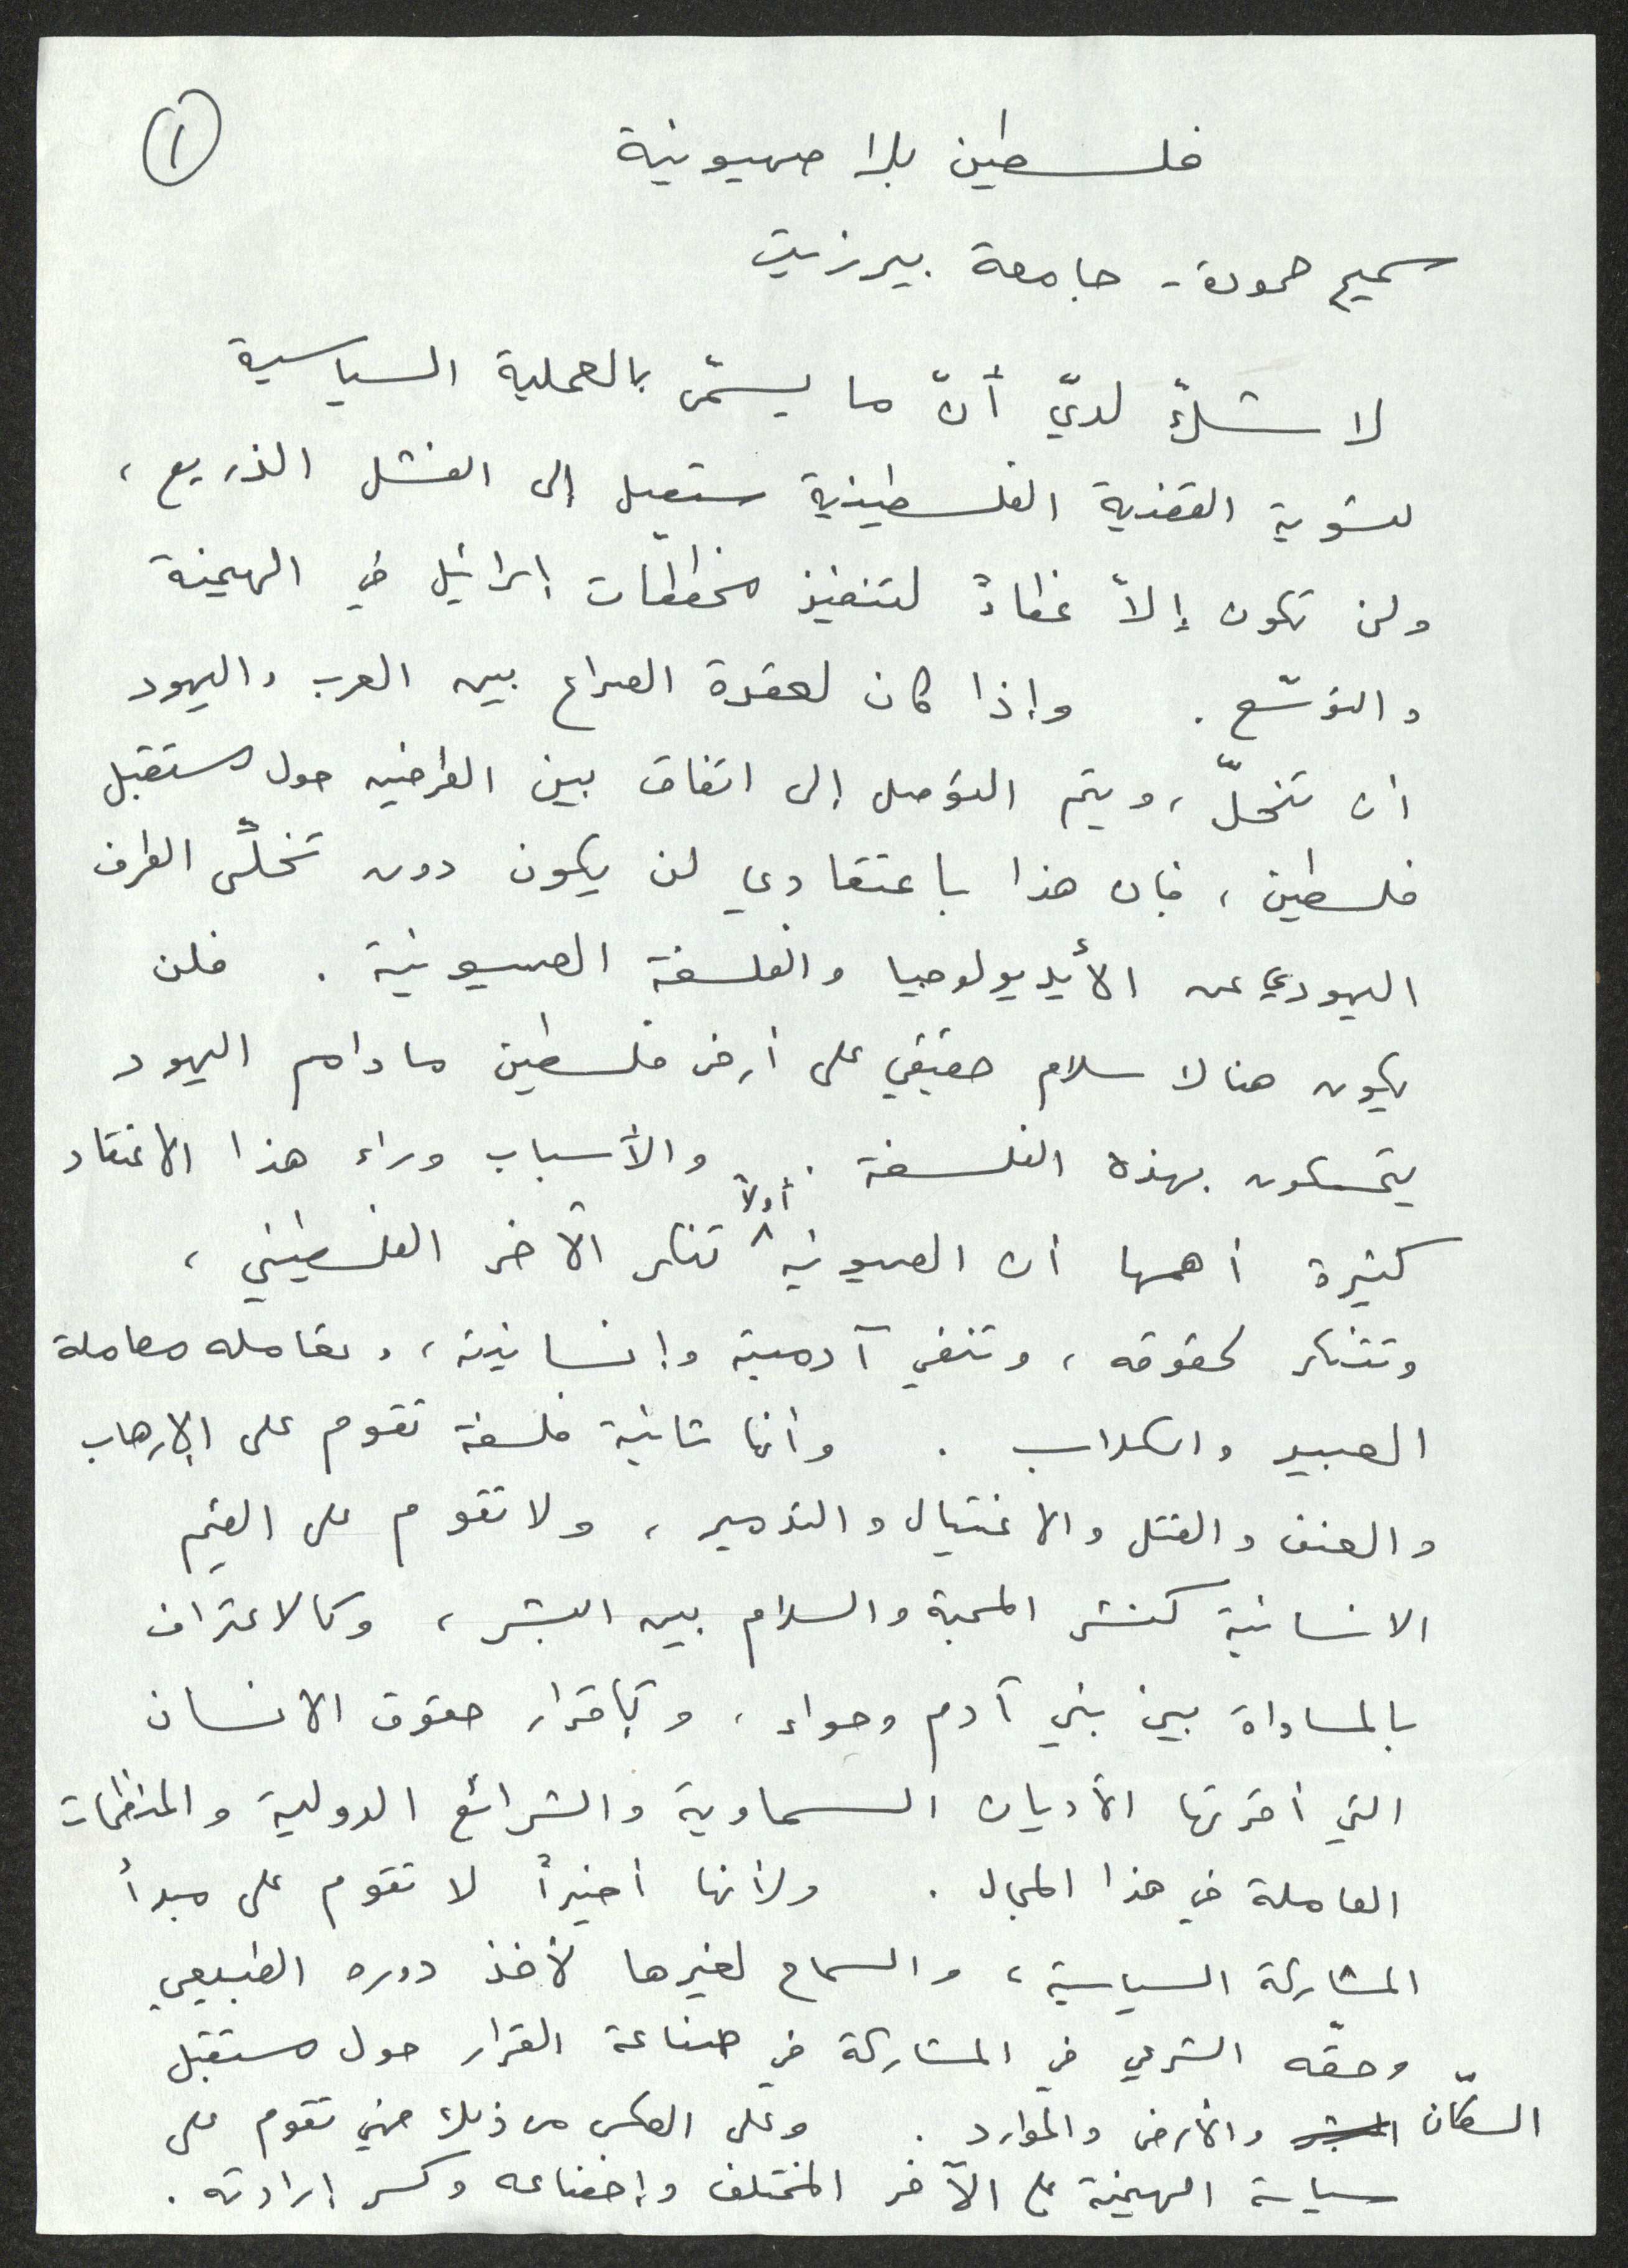 ١
فلسطين بلا صهيونية
سميح حمودة - جامعة بيرزيت
لا شكّ لديّ أنّ ما يسمّى بالعملية السياسية
لتسوية القضية الفلسطينية ستصل إلى الفشل الذريع ،
ولن تكون إلاّ غطاءً لتنفيذ مخططات إسرائيل في الهيمنة
والتوسّع . وإذا كان لعقدة الصراع بين العرب واليهود
ان تنحلّ ، ويتم التوصل إلى اتفاق بين الطرفين حول مستقبل
فلسطين ، فإن هذا باعتقادي لن يكون دون تخلّي الطرف
اليهودي عن الأيديولوجيا والفلسفة الصهيونية . فلن
يكون هناك سلام حقيقي على أرض فلسطين ما دام اليهود
يتمسكون بهذه الفلسفة . والأسباب وراء هذا الاعتقاد
كثيرة أهمها أن الصهيونية أولاً تنكر الآخر الفلسطيني ،
وتتنكر لحقوقه ، وتنفي آدميته وإنسانيته ، وتعامله معاملة
العبيد والكلاب . وأنها ثانية فلسفة تقوم على الإرهاب
والعنف والقتل والاغتيال والتدمير ، ولا تقوم على القيم
الانسانية كنشر المحبة والسلام بين البشر ، وكالاعتراف
بالمساواة بين بني آدم وحواء ، وبإقرار حقوق الانسان
التي أقرتها الأديان السماوية والشرائع الدولية والمنظمات
العاملة في هذا المجال . ولأنها أخيراً لا تقوم على مبدأ
المشاركة السياسية ، والسماح لغيرها لأخذ دوره الطبيعي
وحقّه الشرعي في المشاركة في صناعة القرار حول مستقبل
السكّان والأرض والموارد . وعلى العكس من ذلك فهي تقوم على
سياسة الهيمنة على الآخر المختلف وإخضاعه وكسر إرادته .